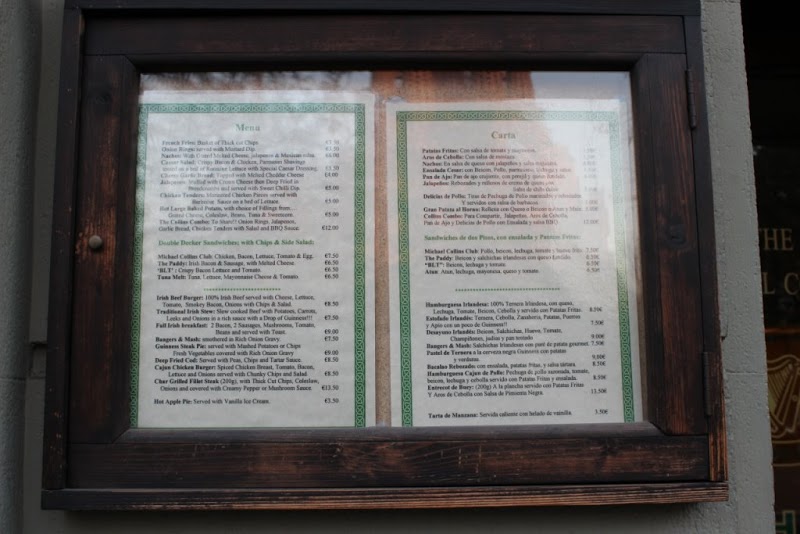 Menu
French Fries: Basket of Thick cut Chips
Onion Rings: served with Melted Dip.
Nachos: With Melted Cheese, Jalapenos &
Caesar Salad: Crispy Bacon & Chicken, Parmesan Shavings
on a bed of Romaine Lettuce with Special Caesar Dressing
Garlic Bread: Topped with Melted Cheddar Cheese €4.00
Jalapenos: Stuffed with Cream Cheese then Deep Fried in
Breadcrumbs and served with Sweet Chilli Dip. €5.00
Chicken Tenders: Marinated Chicken Pieces served with
Barbecue Sauce on a bed of Lettuce €5.00
Large Baked Potato, with choice of Fillings from
Grated Cheese, Coleslaw, Beans, Tuna & Sweetcorn. €5.00
The Collins Combo: To Share!! Onion Rings, Jalapenos,
Garlic Bread, Chicken Tenders with Salad and BBQ Sauce. €12.00
Double Decker Sandwiches; with Chips & Side Salad:
Michael Collins Club: Chicken, Bacon, Lettuce, Tomato & Egg. €7.50
The Paddy: Irish Bacon & Sausage, with Melted Cheese. €6.50
"BLT" : Crispy Bacon Lettuce and Tomato. €6.50
Tuna Melt: Tuna, Lettuce, Mayonnaise Cheese & Tomato. €6.50
Irish Beef Burger: 100% Irish Beef served with Cheese, Lettuce,
Tomato, Smokey Bacon, Onions with Chips & Salad. €8.50
Traditional Irish Stew: Slow cooked Beef with Potatoes, Carrots,
Leeks and Onions in a rich sauce with a Drop of Guinness!!! €7.50
Full Irish breakfast: 2 Bacon, 2 Sausages, Mushrooms, Tomato,
Beans and served with Toast. €9.00
Bangers & Mash: smothered in Rich Onion Gravy. €7.50
Guinness Steak Pie: served with Mashed Potatoes or Chips
Fresh Vegetables covered with Rich Onion Gravy €9.00
Deep Fried Cod: Served with Peas, Chips and Tartar Sauce. €8.50
Cajun Chicken Burger: Spiced Chicken Breast, Tomato, Bacon,
Lettuce and Onions served with Chunky Chips and Salad. €8.50
Char Grilled Fillet Steak (200g), with Thick Cut Chips, Coleslaw,
Onions and covered with Creamy Pepper or Mushroom Sauce. €13.50
Hot Apple Pie: Served with Vanilla Ice Cream. €3.50
Carta
Patatas Fritas: Con salsa de tomate y mayonesa.
Aros de Cebolla: Con salsa de mostaza
Nachos: En salsa de queso con jalapeños y salsa
Ensalada Cesar: con Beicon, Pollo, parmesano, lechuga y salsa
Pan de Ajo: Pan de ajo crujiente, con perejil y queso fundido.
Jalapeños: Rebozados y rellenos de crema de queso con
Salsa de chili dulce.
Delicias de Pollo: Tiras de Pechuga de Pollo marinadas y rebozadas
Y servidos con salsa de barbacoa.
Gran Patata al Horno: Rellena con Queso o Beicon
Collins Combo: Para Compartir, Jalapeños, Aros de Cebolla,
Pan de Ajo y Delicias de Pollo con Ensalada y salsa BBQ 12.00€
Sandwiches de dos Pisos, con ensalada y Patatas Fritas:
Michael Collins Club: Pollo, beicon, lechuga, tomate y huevo frito. 7.50€
The Paddy: Beicon y salchichas irlandesas con queso fundido. 6.50€
"BLT": Beicon, lechuga y tomate. 6.50€
Atun: Atun, lechuga, mayonesa, queso y tomate. 6.50€
Hamburguesa Irlandesa: 100% Ternera Irlandesa, con queso,
Lechuga, Tomate, Beicon, Cebolla y servido con Patatas Fritas. 8.50€
Estofado Irlandés: Ternera, Cebolla, Zanahoria, Patatas, Puerros
y Apio con un poco de Guinness!! 7.50€
Desayuno Irlandés: Beicon, Salchichas, Huevo, Tomate,
Champiñones, judías y pan tostado 9.00€
Bangers & Mash: Salchichas Irlandesas con puré de patata gourmet. 7.50€
Pastel de Ternera a la cerveza negra Guinness con patatas
y verduras. 9.00€
Bacalao Rebozado: con ensalada, patatas Fritas, y salsa tártara. 8.50€
Hamburguesa Cajun de Pollo: Pechuga de pollo sazonada, tomate,
beicon, lechuga y cebolla servido con Patatas Fritas y ensalada. 8.50€
Entrecot de Buey: (200g) A la plancha servido con Patatas Fritas
Y Aros de Cebolla con Salsa de Pimienta Negra. 13.50€
Tarta de Manzana: Servida caliente con helado de vainilla. 3.50€
THE
L C